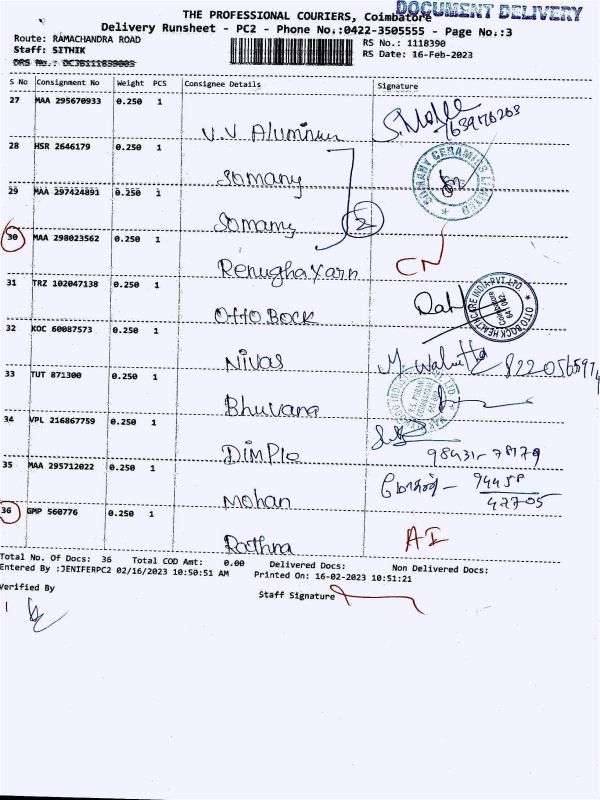 DOCUMENT DELIVERY
THE PROFESSIONAL COURIERS, Coimbatore
Delivery Runsheet - PC2 - Phone No.:0422-3505555 - Page No.:3
Route: RAMACHANDRA ROAD
RS No.: 1118390
Staff: SITHIK
RS Date: 16-Feb-2023
S No Consignment No Weight PCS Consignee Details Signature
27 MAA 295670933 0.250 1
V.V Aluminium
28 HSR 2646179 0.250 1
Somany
SOMANY CERAMICS LIMITED
29 MAA 297424891 0.250 1
Somany
2
30 MAA 298023562 0.250 1
Renugha Yarn CN
31 TRZ 102047138 0.250 1
Otto Bock
OTTO BOCK HEALTHCARE INDIA PVT. LTD.
Coimbatore
32 KOC 60087573 0.250 1
Nivas
33 TUT 871300 0.250 1
Bhuvana
34 VPL 216867759 0.250 1
Dimple 98431-78179
35 MAA 295712022 0.250 1
Mohan மோகன் - 94458
42705
36 GMP 560776 0.250 1
Rathna AI
Total No. Of Docs: 36 Total COD Amt: 0.00 Delivered Docs: Non Delivered Docs:
Entered By :JENIFERPC2 02/16/2023 10:50:51 AM Printed On: 16-02-2023 10:51:21
Verified By
Staff Signature